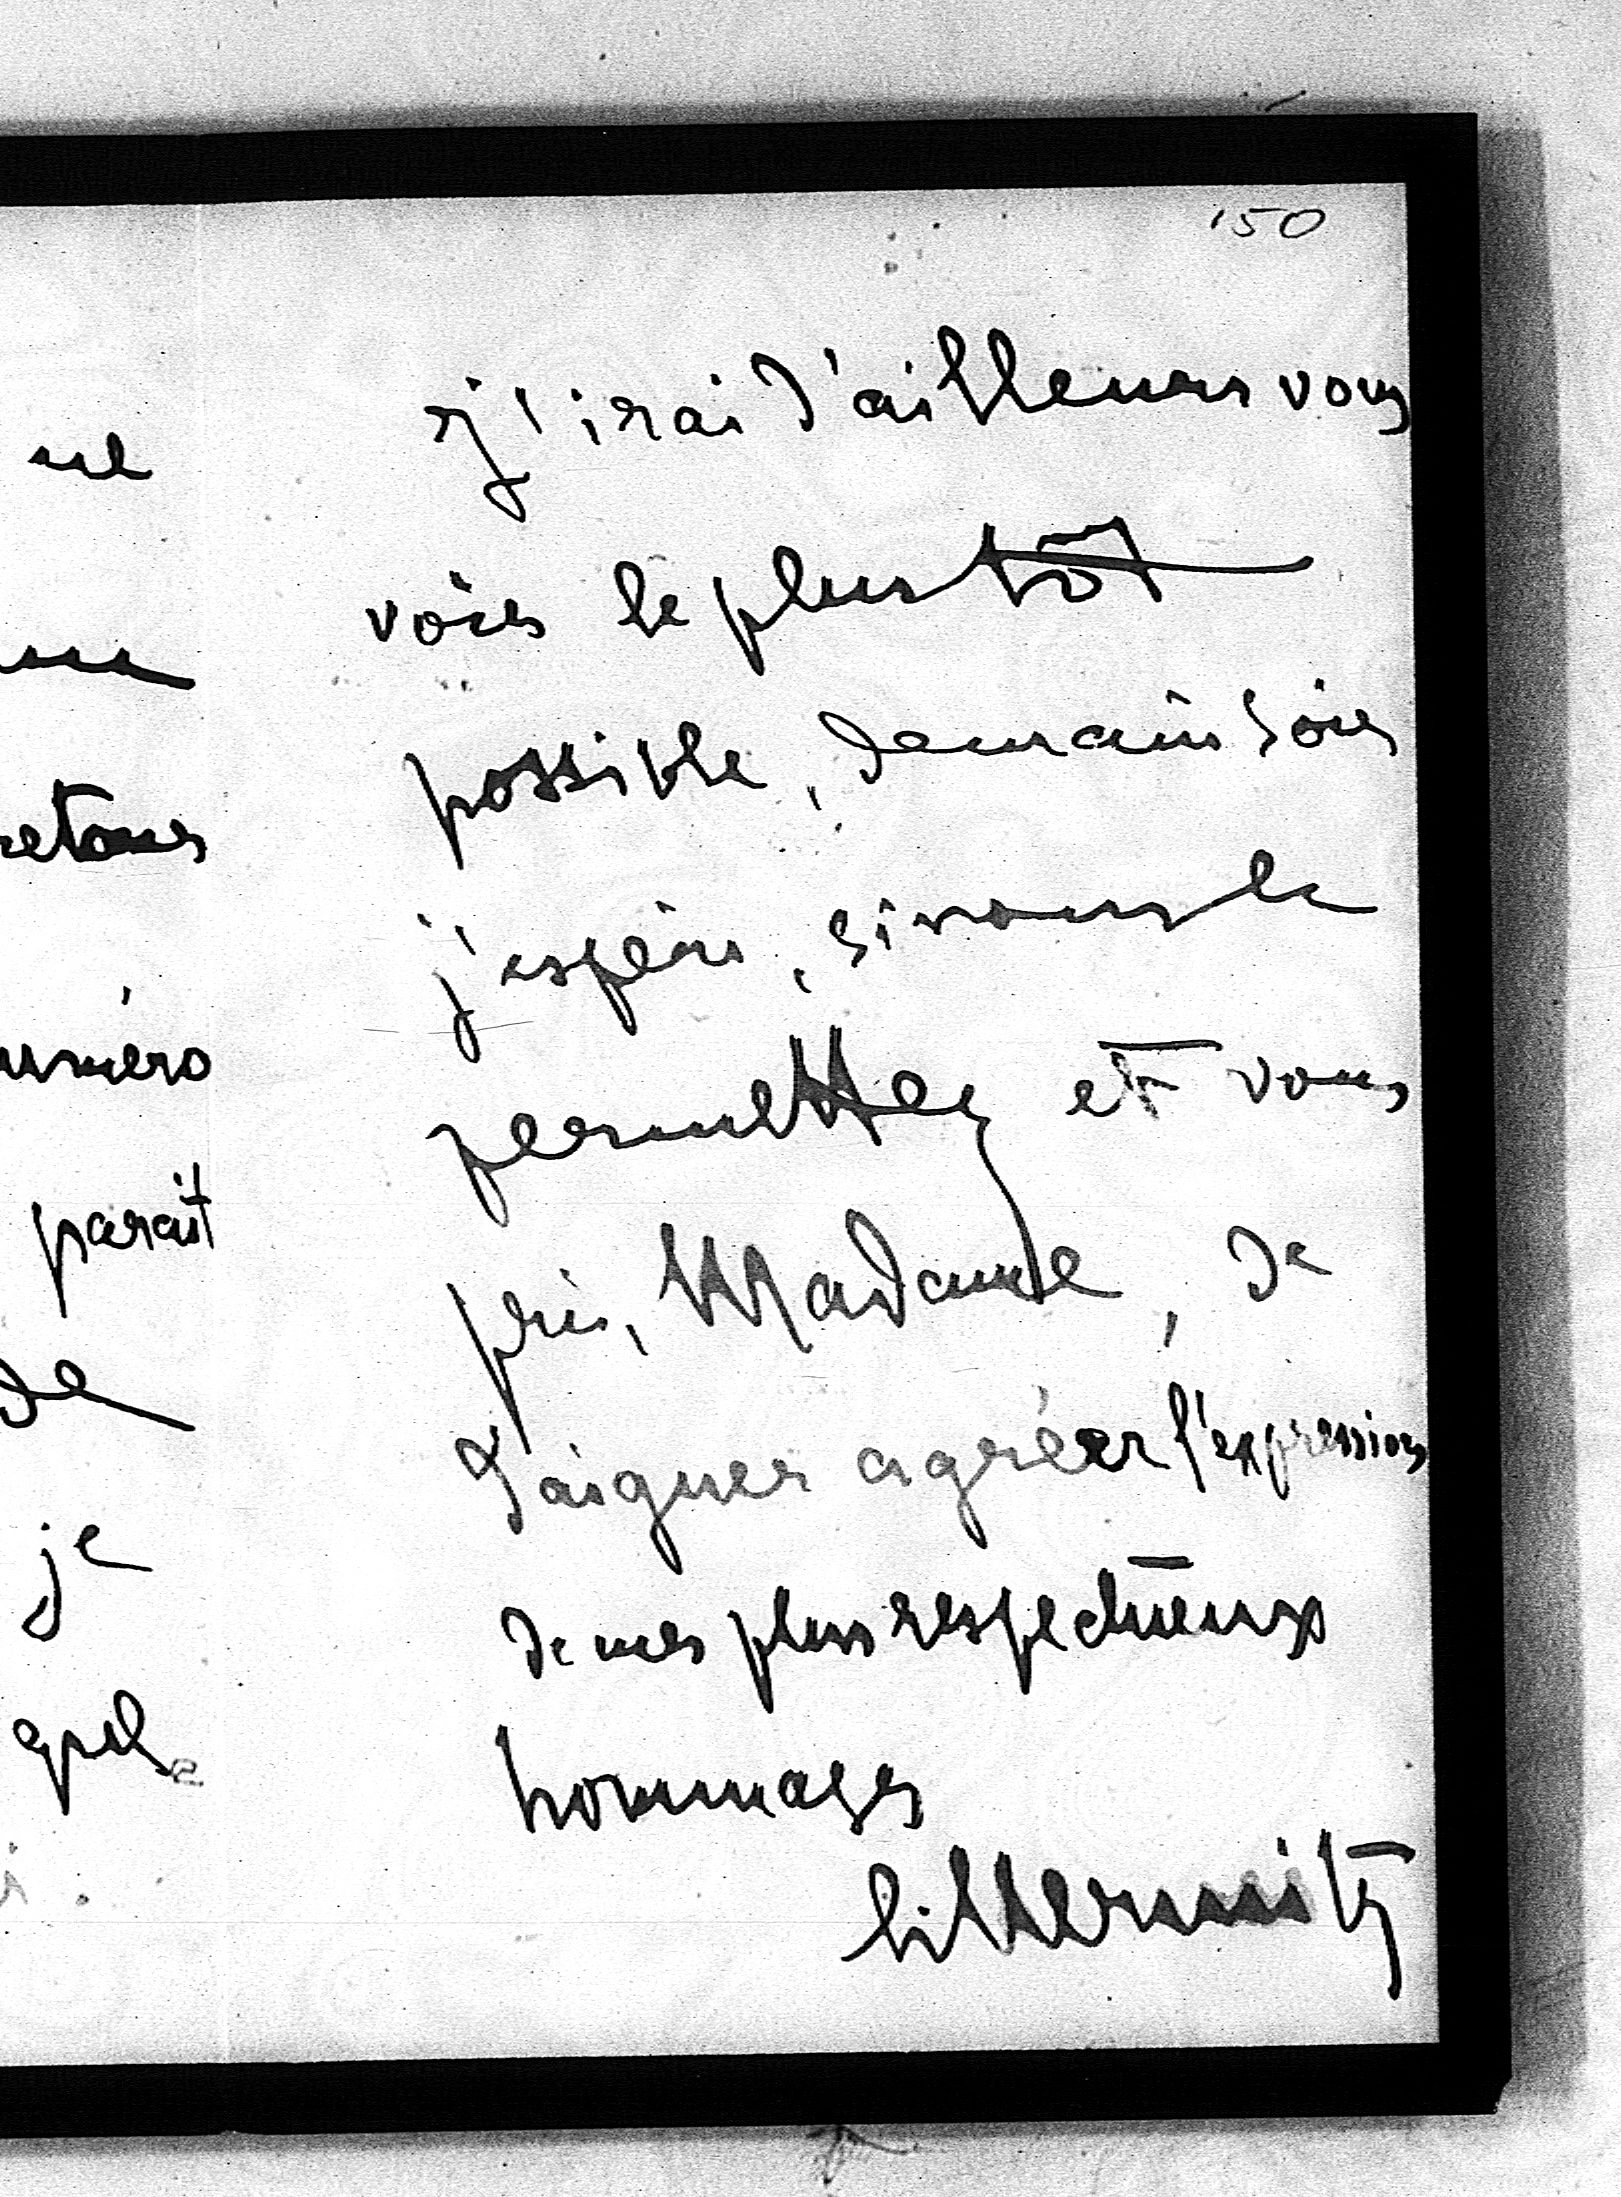 150
ne
retour
numéro
parait
de
je
j'irai d'ailleurs vous
voir le plus tôt
possible, demain soir
j'espère, si vous le
permettez et vous
prie, Madame, de
daigner agréer l'expression
de mes plus respectueux
hommages
Littermitz